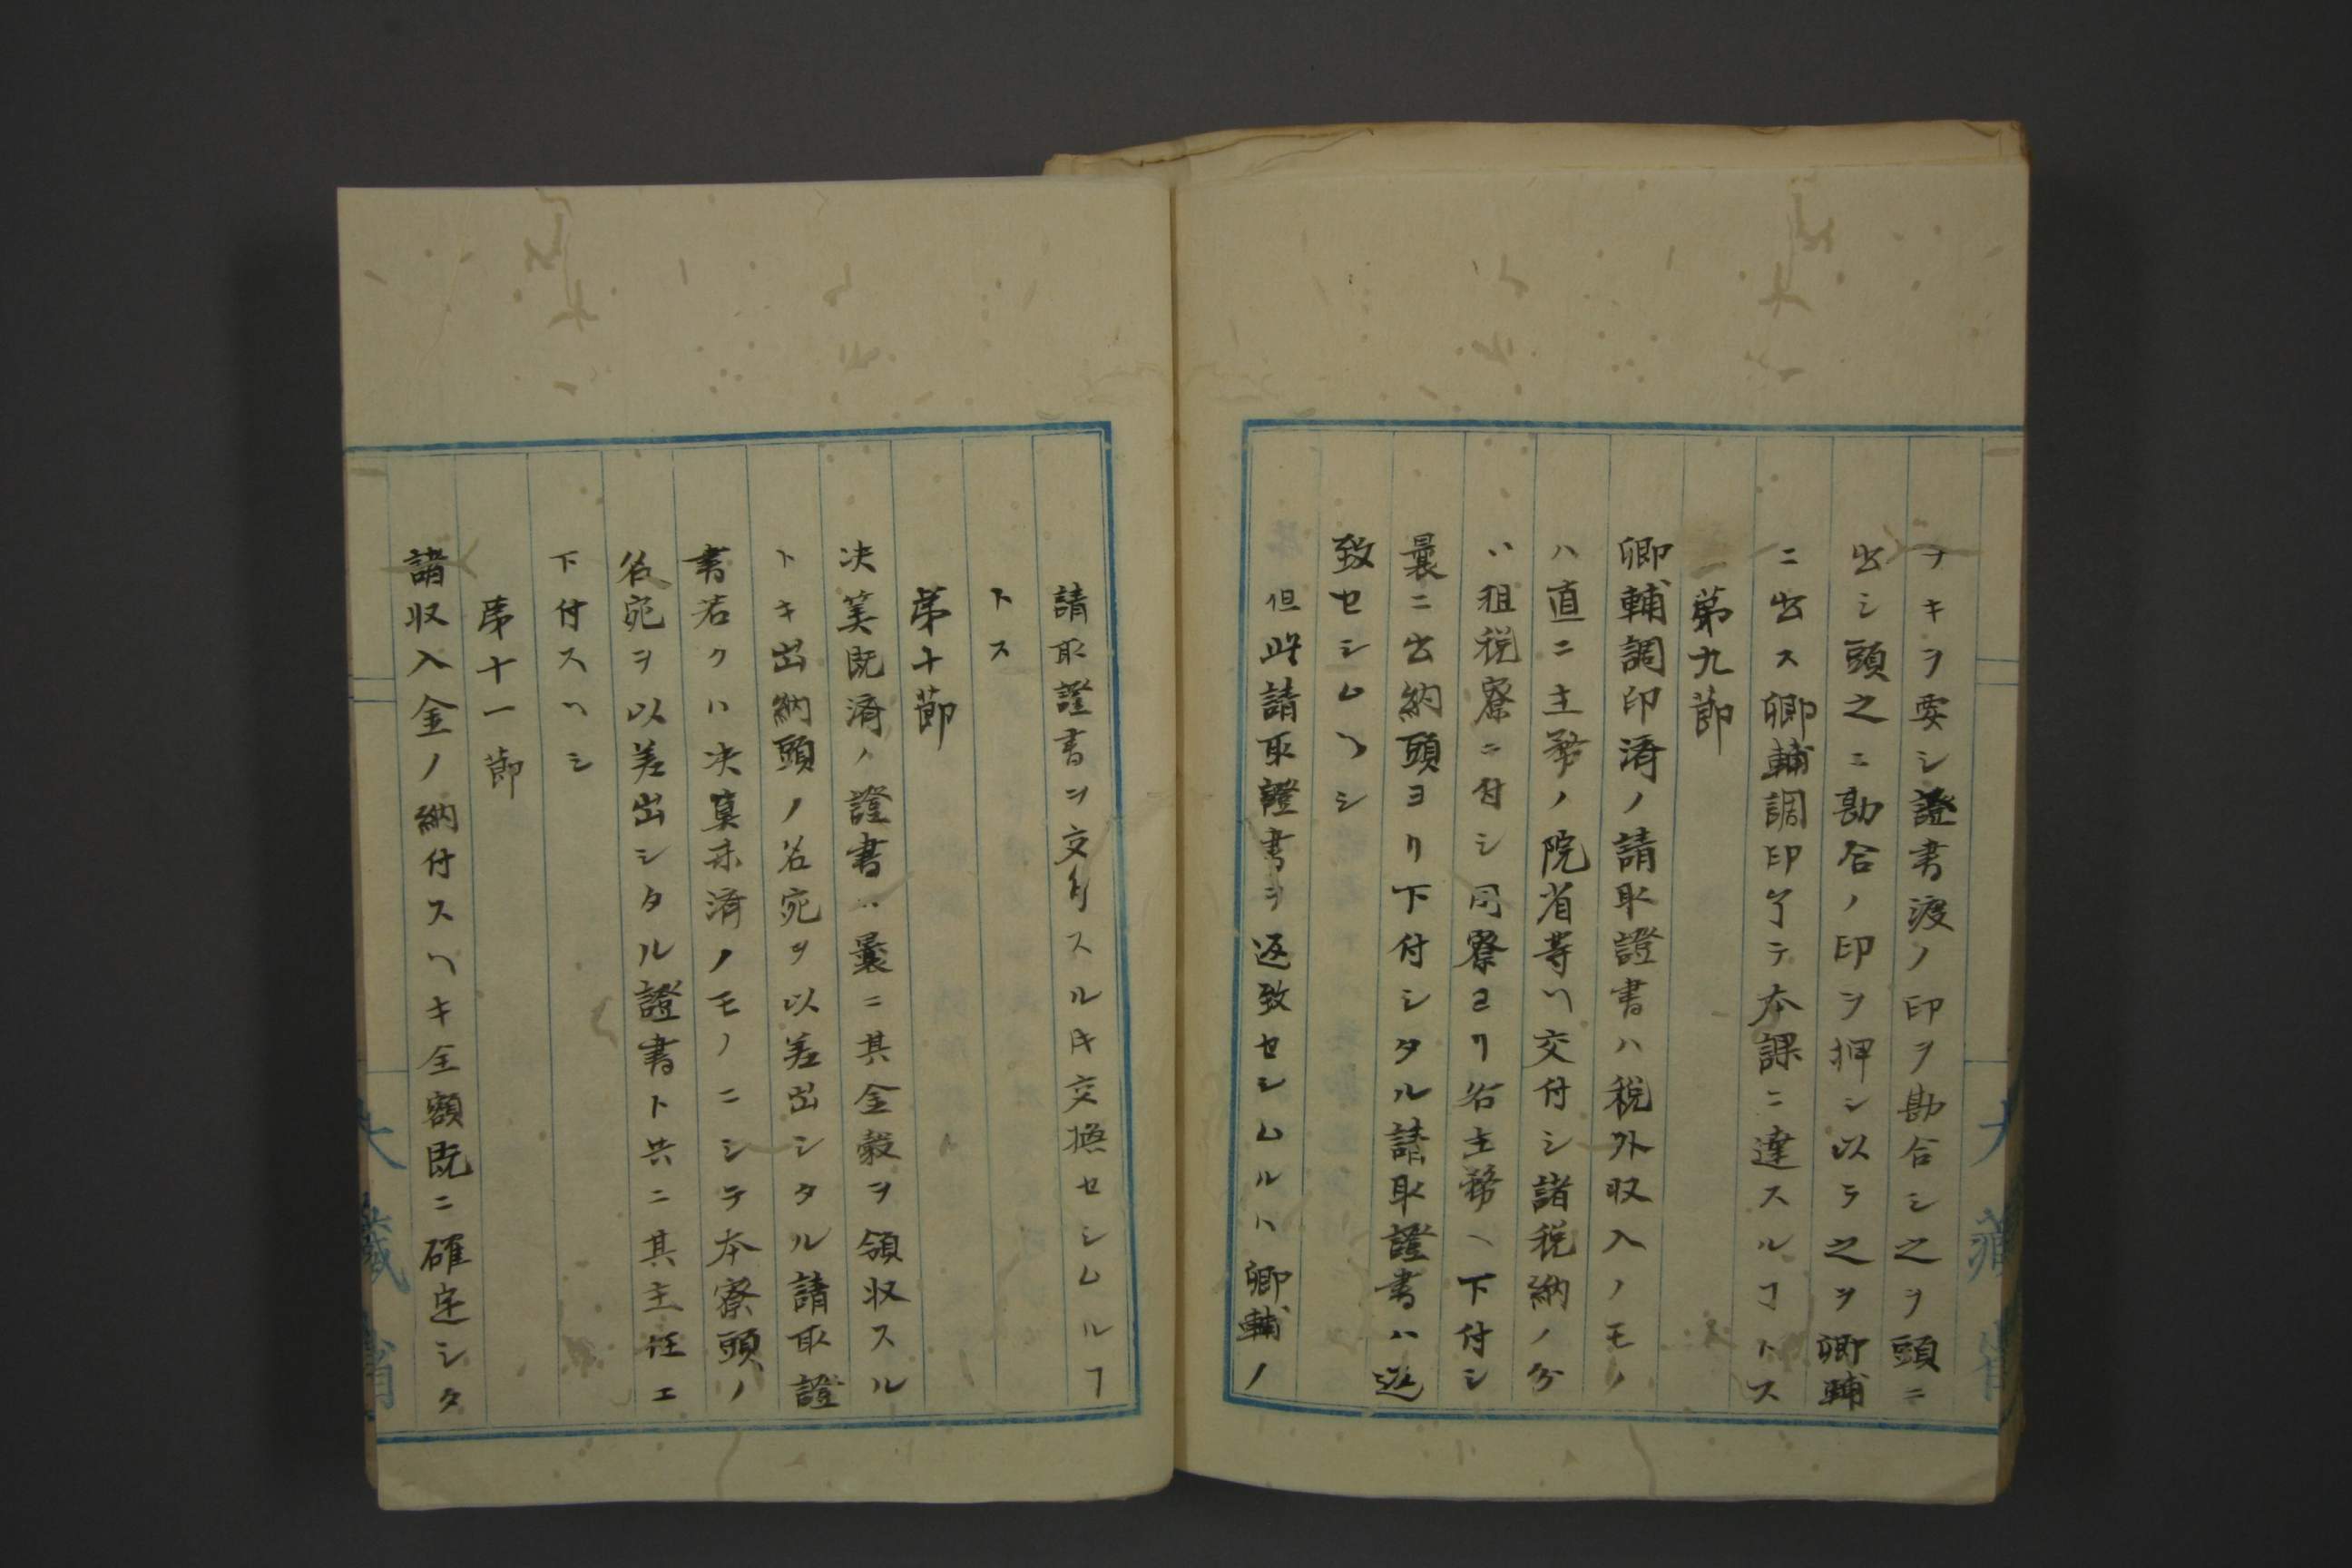 ヲキヲ要シ證書渡ノ印ヲ勘合シ之ヲ頭ニ
出シ頭之ニ勘合ノ印ヲ押シ以テ之ヲ卿輔
ニ出ス卿輔調印了テ本課ニ達スルコトス
第九節
卿輔調印濟ノ請取證書ハ税外収入ノモノ
ハ直ニ主務ノ院省等ヘ交付シ諸税納ノ分
ハ租税寮ニ付シ同寮ヨリ各主務ヘ下付シ
曩ニ出納頭ヨリ下付シタル請取證書ハ返
致セシムヘシ
但此請取證書ヲ返致セシムルハ卿輔ノ
請取證書ヲ交付スルキ交換セシムルヿ
トス
第十節
决算既濟ノ證書ハ曩ニ其金穀ヲ領収スル
トキ出納頭ノ名宛ヲ以差出シタル請取證
書若クハ决算未濟ノモノニシテ本寮頭ノ
名宛ヲ以差出シタル證書ト共ニ其主任エ
下付スヘシ
第十一節
諸収入金ノ納付スヘキ全額既ニ確定シタ
大藏省
大藏省